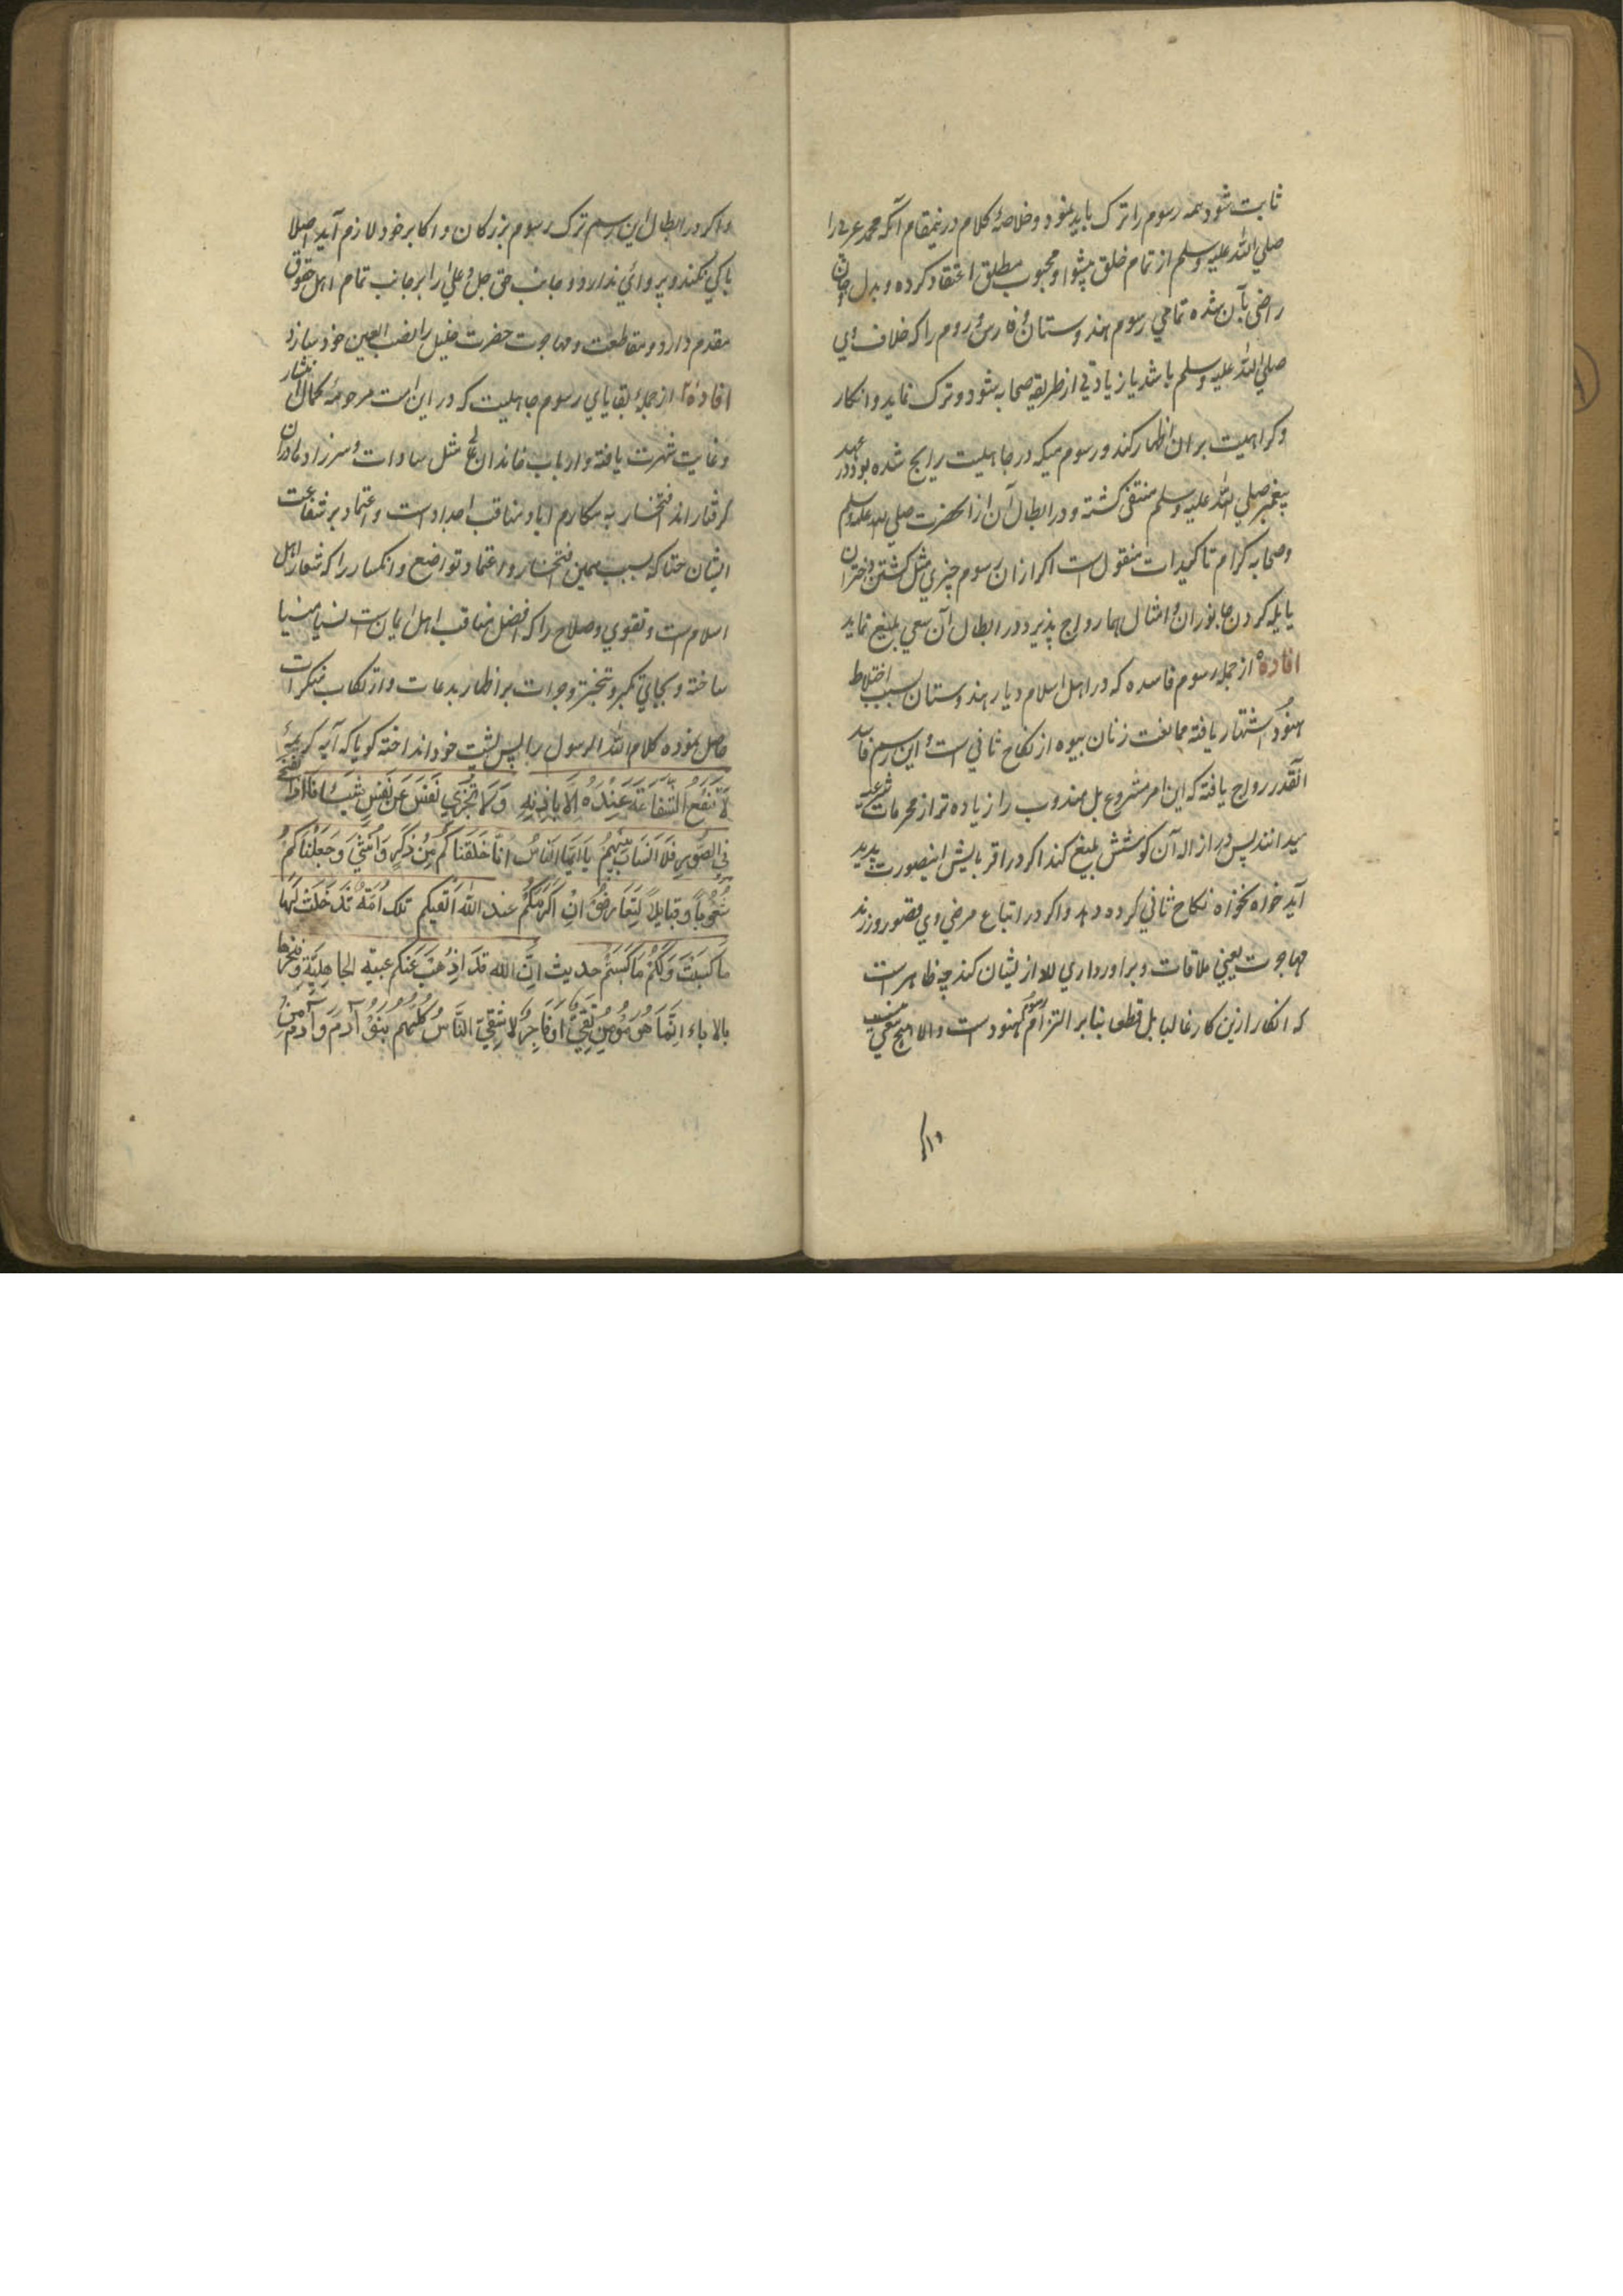 ثابت شود همه رسوم را ترک باید نمود و خلاصهٔ کلام درینمقام آنکه محمد عربی را
صلی الله علیه وسلم از تمام خلق پیشوا و محبوب مطلق اعتقاد کرده و بدل و جان
راضی بآن شده تمامی رسوم هندوستان و فارس و روم را که خلاف وی
صلی الله علیه وسلم باشد یا زیادتی از طریقه صحابه شود و ترک نماید و انکار
و کراهیت بر ان اظهار کند و رسومیکه در جاهلیت رایج شده بود و در عهد
پیغمبر صلی الله علیه وسلم منتفی کشته و در ابطال آن از انحضرت صلی الله علیه وسلم
و صحابه کرام تاکیدات منقول است اکر ازان رسوم چیزی مثل کشتن دختران
یا یله کردن جانوران و امثال هما رواج پذیرد در ابطال آن سعی بلیغ نماید
افاده از جمله رسوم فاسده که در اهل اسلام دیار هندوستان بسبب اختلاط
هنود اشتهار یافته ممانعت زنان بیوه از نکاح ثانی است و این رسم فاسد
آنقدر رواج یافته که این امر مشروع بل مندوب را زیاده تر از محرمات شرعیه
میدانند پس در ازاله آن کوشش بلیغ کند اکر در اقربایش اینصورت پدید
آید خواه نخواه نکاح ثانی کرده دهد و اکر در اتباع مرضی وی قصور ورزند
مهاجرت یعنی ملاقات و برادرداری للّه از ایشان کند چه ظاهر است
که انکار ازین کار غالبا بل قطعا بنابر التزام رسوم هنود است والا هیچ معنی نیست
و اکر در ابطال این رسم ترک رسوم بزرکان و اکابر خود لازم آید اصلا
باکی نکند و پروائی ندارد و جانب حق جل و علی را بر جانب تمام اهل حقوق
مقدم دارد و مقاطعت و مهاجرت حضرت خلیل را نصب العین خود سازد
افادهٔ از جملهٔ بقایای رسوم جاهلیت که در این امت مرحومهٔ کمال انتشار
و غایت شهرت یافته و ارباب خاندان مثل سادات و پیرزادها دران
کرفتار اند افتخار به مکارم ابا و مناقب اجداد است و اعتماد بر شفاعت
ایشان حتا که بسبب همین افتخار و اعتماد تواضع و انکسار را که شعار اهل
اسلام است و تقوی و صلاح را که افضل مناقب اهل ایمان است نسیا منسیا
ساخته و بجای تکبر و تبختر و جرات بر اظهار بدعات و ارتکاب منکرات
حاصل نموده کلام الله و الرسول را پس پشت خود انداخته کویا که آیه کریمهٔ
لَا تَنْفَعُ الشَّفَاعَةُ عِنْدَهُ إِلَّا بِإِذْنِهِ وَلَا تَجْزِي نَفْسٌ عَنْ نَفْسٍ شَيْئًا فَاِذَا نُفِخَ
فِي الصُّورِ فَلَا أَنْسَابَ بَيْنَهُمْ يَا أَيُّهَا النَّاسُ اِنَّا خَلَقْنَاكُمْ مِنْ ذَكَرٍ وَاُنْثٰی وَجَعَلْنَاكُمْ
شُعُوبًا وَقَبَايِلَ لِتَعَارَفُوا اِنَّ اَكْرَمَكُمْ عِنْدَ اللهِ اَتْقٰیكُمْ تِلْكَ اُمَّةٌ قَدْ خَلَتْ لَهَا
مَا كَسَبَتْ وَلَكُمْ مَا كَسَبْتُمْ حدیث اِنَّ اللهَ قَدْ اَذْهَبَ عَنْكُمْ عبیّة الْجَاهِلِيَّةِ وَفَخْرَهَا
بالاباء اِنَّمَا هُوَ مُؤْمِنٌ تَقِيٌّ اَوْ فَاجِرٌ شَقِيٌّ النَّاسُ كُلُّهُمْ بَنُو آدَمَ وَآدَمُ مِنْ